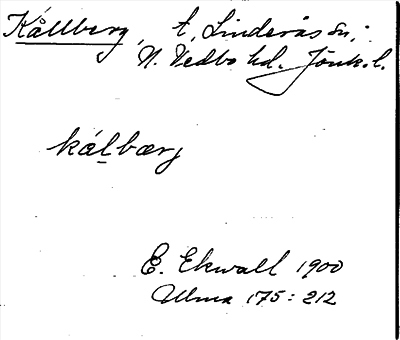 Kållberg, t. Linderås sn;
N. Vedbo hd. Jönk. l.
kálbærj
E. Ekwall 1900
Ulma 175:212